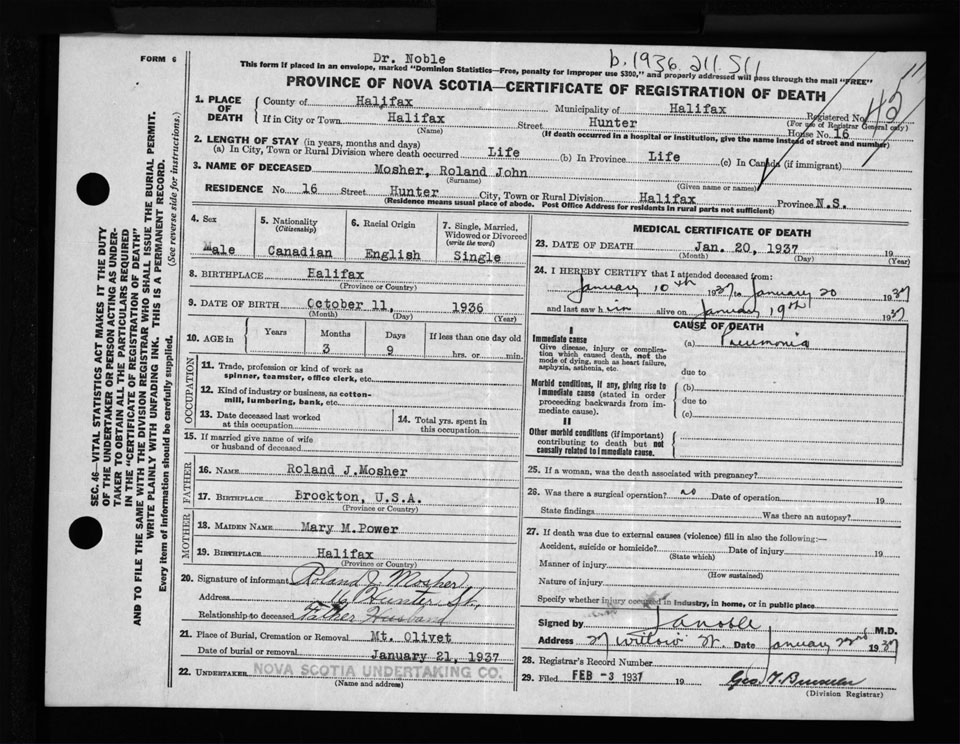 FORM 6
Dr. Noble
b.1936.211.511
This form if placed in an envelope, marked "Dominion Statistics—Free, penalty for improper use $300," and properly addressed will pass through the mail "FREE"
PROVINCE OF NOVA SCOTIA—CERTIFICATE OF REGISTRATION OF DEATH
1. PLACE OF DEATH
County of Halifax Municipality of Halifax
Registered No. 42
(For use of Registrar General only)
If in City or Town Halifax Street Hunter House No. 16
(Name) (If death occurred in a hospital or institution, give the name instead of street and number)
2. LENGTH OF STAY (in years, months and days)
(a) In City, Town or Rural Division where death occurred Life (b) In Province Life (c) In Canada (if immigrant)
3. NAME OF DECEASED Mosher, Roland John
(Surname) (Given name or names)
RESIDENCE No. 16 Street Hunter City, Town or Rural Division Halifax Province N.S.
(Residence means usual place of abode. Post Office Address for residents in rural parts not sufficient)
4. Sex
Male
5. Nationality
(Citizenship)
Canadian
6. Racial Origin
English
7. Single, Married, Widowed or Divorced
(write the word)
Single
8. BIRTHPLACE Halifax
(Province or Country)
9. DATE OF BIRTH October 11, 1936
(Month) (Day) (Year)
10. AGE in Years Months Days If less than one day old
3 9 hrs. or min.
OCCUPATION
11. Trade, profession or kind of work as spinner, teamster, office clerk, etc.
12. Kind of industry or business, as cotton-mill, lumbering, bank, etc.
13. Date deceased last worked at this occupation
14. Total yrs. spent in this occupation
15. If married give name of wife or husband of deceased
FATHER
16. NAME Roland J.Mosher
17. BIRTHPLACE Brockton, U.S.A.
(Province or Country)
MOTHER
18. MAIDEN NAME Mary M.Power
19. BIRTHPLACE Halifax
(Province or Country)
20. Signature of informant Roland J. Mosher
Address 16 Hunter St.,
Relationship to deceased Father Husband
21. Place of Burial, Cremation or Removal Mt. Olivet
Date of burial or removal January 21, 1937
22. UNDERTAKER NOVA SCOTIA UNDERTAKING CO.
(Name and address)
MEDICAL CERTIFICATE OF DEATH
23. DATE OF DEATH Jan. 20, 1937 19
(Month) (Day) (Year)
24. I HEREBY CERTIFY that I attended deceased from:
January 10th 1937 to January 20 1937
and last saw h im alive on January 19th 1937
CAUSE OF DEATH
I
Immediate cause
Give disease, injury or complication which caused death, not the mode of dying, such as heart failure, asphyxia, asthenia, etc.
(a) Pneumonia
due to
Morbid conditions, if any, giving rise to immediate cause (stated in order proceeding backwards from immediate cause).
(b)
due to
(c)
II
Other morbid conditions (if important) contributing to death but not causally related to immediate cause.
25. If a woman, was the death associated with pregnancy?
26. Was there a surgical operation? no Date of operation 19
State findings Was there an autopsy?
27. If death was due to external causes (violence) fill in also the following:—
Accident, suicide or homicide? Date of injury 19
(State which)
Manner of injury
(How sustained)
Nature of injury
Specify whether injury occurred in industry, in home, or in public place
Signed by M.D.
Address 27 Willow St. Date January 22nd 1937
28. Registrar's Record Number
29. Filed FEB -3 1937 19
(Division Registrar)
SEC. 46—VITAL STATISTICS ACT MAKES IT THE DUTY
OF THE UNDERTAKER OR PERSON ACTING AS UNDER-
TAKER TO OBTAIN ALL THE PARTICULARS REQUIRED
IN THE "CERTIFICATE OF REGISTRATION OF DEATH"
AND TO FILE THE SAME WITH THE DIVISION REGISTRAR WHO SHALL ISSUE THE BURIAL PERMIT.
WRITE PLAINLY WITH UNFADING INK. THIS IS A PERMANENT RECORD.
Every item of information should be carefully supplied. (See reverse side for instructions.)